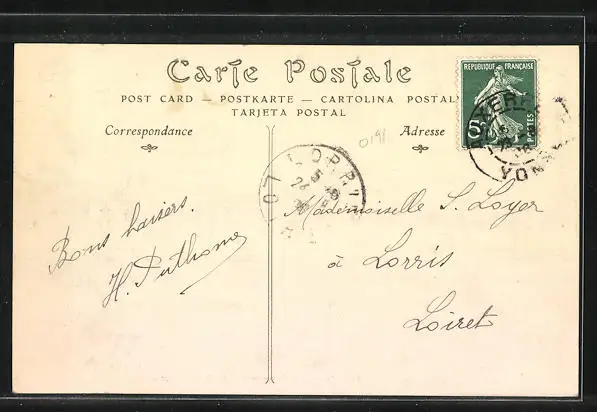 Carte Postale
POST CARD — POSTKARTE — CARTOLINA POSTAL
TARJETA POSTAL
Correspondance
Adresse
REPUBLIQUE FRANÇAISE
5c
POSTES
AUXERRE
YONNE
LORRIS
0191
Bons baisers.
H. Puthome
Mademoiselle S. Loyer
à Lorris
Loiret